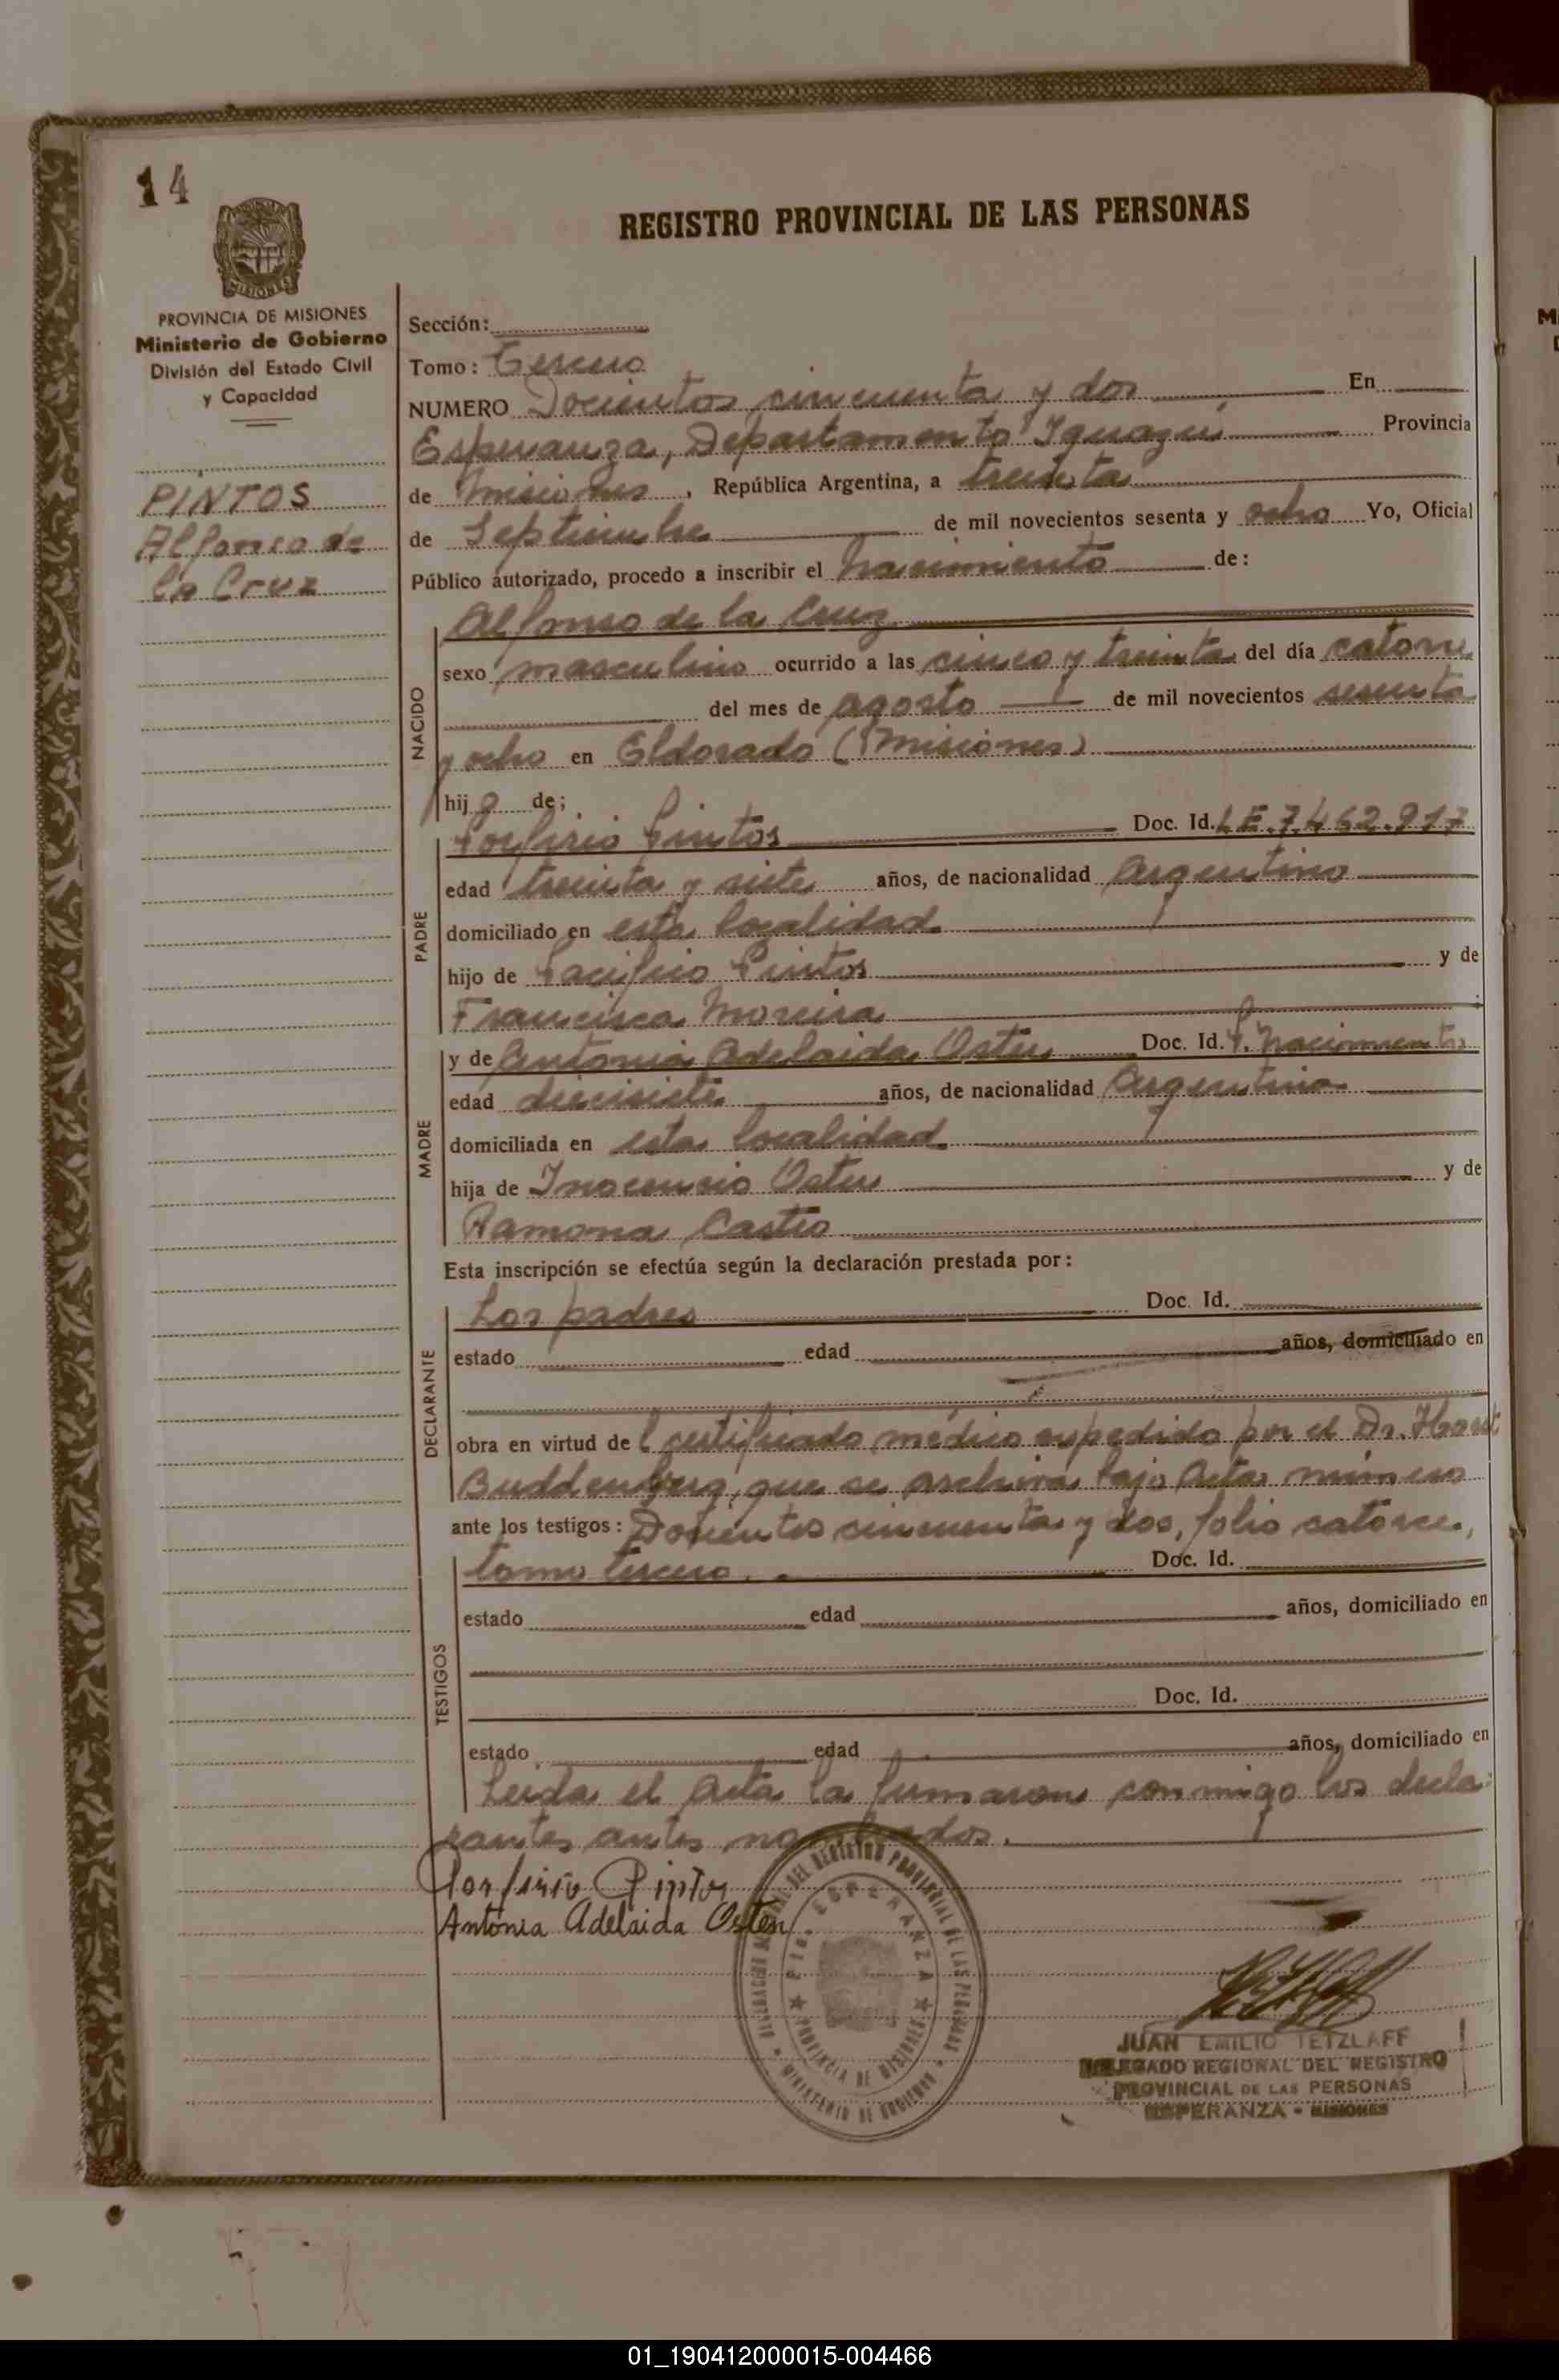 14
REGISTRO PROVINCIAL DE LAS PERSONAS
MISIONES
PROVINCIA DE MISIONES
Ministerio de Gobierno
División del Estado Civil
y Capacidad
PINTOS
Alfonso de
la Cruz
Sección:
Tomo: Tercero
NUMERO Docientos cincuenta y dos En
Esperanza, Departamento Iguazú Provincia
de Misiones, República Argentina, a treinta
de Septiembre de mil novecientos sesenta y ocho Yo, Oficial
Público autorizado, procedo a inscribir el nacimiento de:
NACIDO
Alfonso de la Cruz
sexo masculino ocurrido a las cinco y treinta del día catorce
del mes de agosto de mil novecientos sesenta
y ocho en Eldorado (Misiones)
hijo de;
PADRE
Porfirio Pintos Doc. Id. L.E. 7.462.917
edad treinta y siete años, de nacionalidad Argentino
domiciliado en esta localidad
hijo de Pacifico Pintos y de
Francisca Moreira
MADRE
y de Antonia Adelaida Osten Doc. Id. P. Nacimiento
edad diecisiete años, de nacionalidad Argentina
domiciliada en esta localidad
hija de Inocencio Osten y de
Ramona Castro
Esta inscripción se efectúa según la declaración prestada por:
DECLARANTE
Los padres Doc. Id.
estado edad años, domiciliado en
obra en virtud del certificado médico expedido por el Dr. Horst
Buddenberg, que se archiva bajo Acta número
ante los testigos: Docientos cincuenta y dos, folio catorce,
TESTIGOS
tomo tercero. Doc. Id.
estado edad años, domiciliado en
Doc. Id.
estado edad años, domiciliado en
Leida el Acta la firmaron conmigo los decla-
rantes antes nombrados.
Porfirio Pintos
Antonia Adelaida Osten
DEL REGISTRO PROVINCIAL DE LAS PERSONAS
MINISTERIO DE GOBIERNO
Pto. ESPERANZA
PROVINCIA DE MISIONES
JUAN EMILIO TETZLAFF
DELEGADO REGIONAL DEL REGISTRO
PROVINCIAL DE LAS PERSONAS
ESPERANZA - MISIONES
01_190412000015-004466